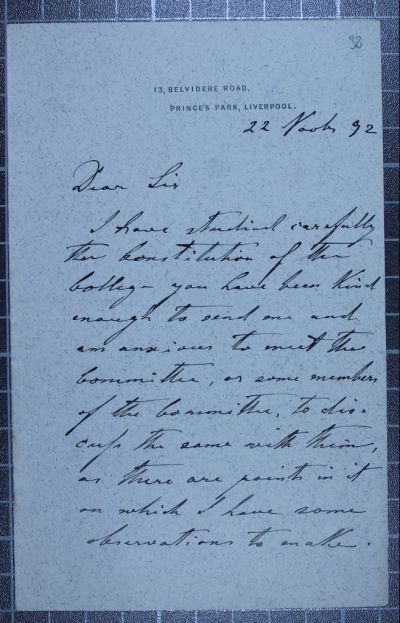 98
13, BELVIDERE ROAD,
PRINCE'S PARK, LIVERPOOL.
22 Novbr 92
Dear Sir
I have studied carefully
the Constitution of the
College you have been Kind
enough to send me and
am anxious to meet the
Committee, or some members
of the Committee, to dis-
cuss the same with them,
as there are points in it
on which I have some
observations to make.